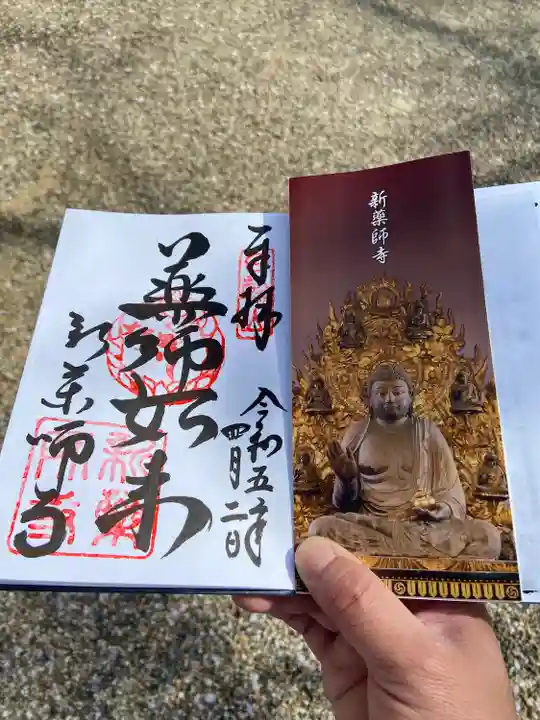 奉拝
令和五年
四月二日
薬師如来
新薬師寺
新薬師寺